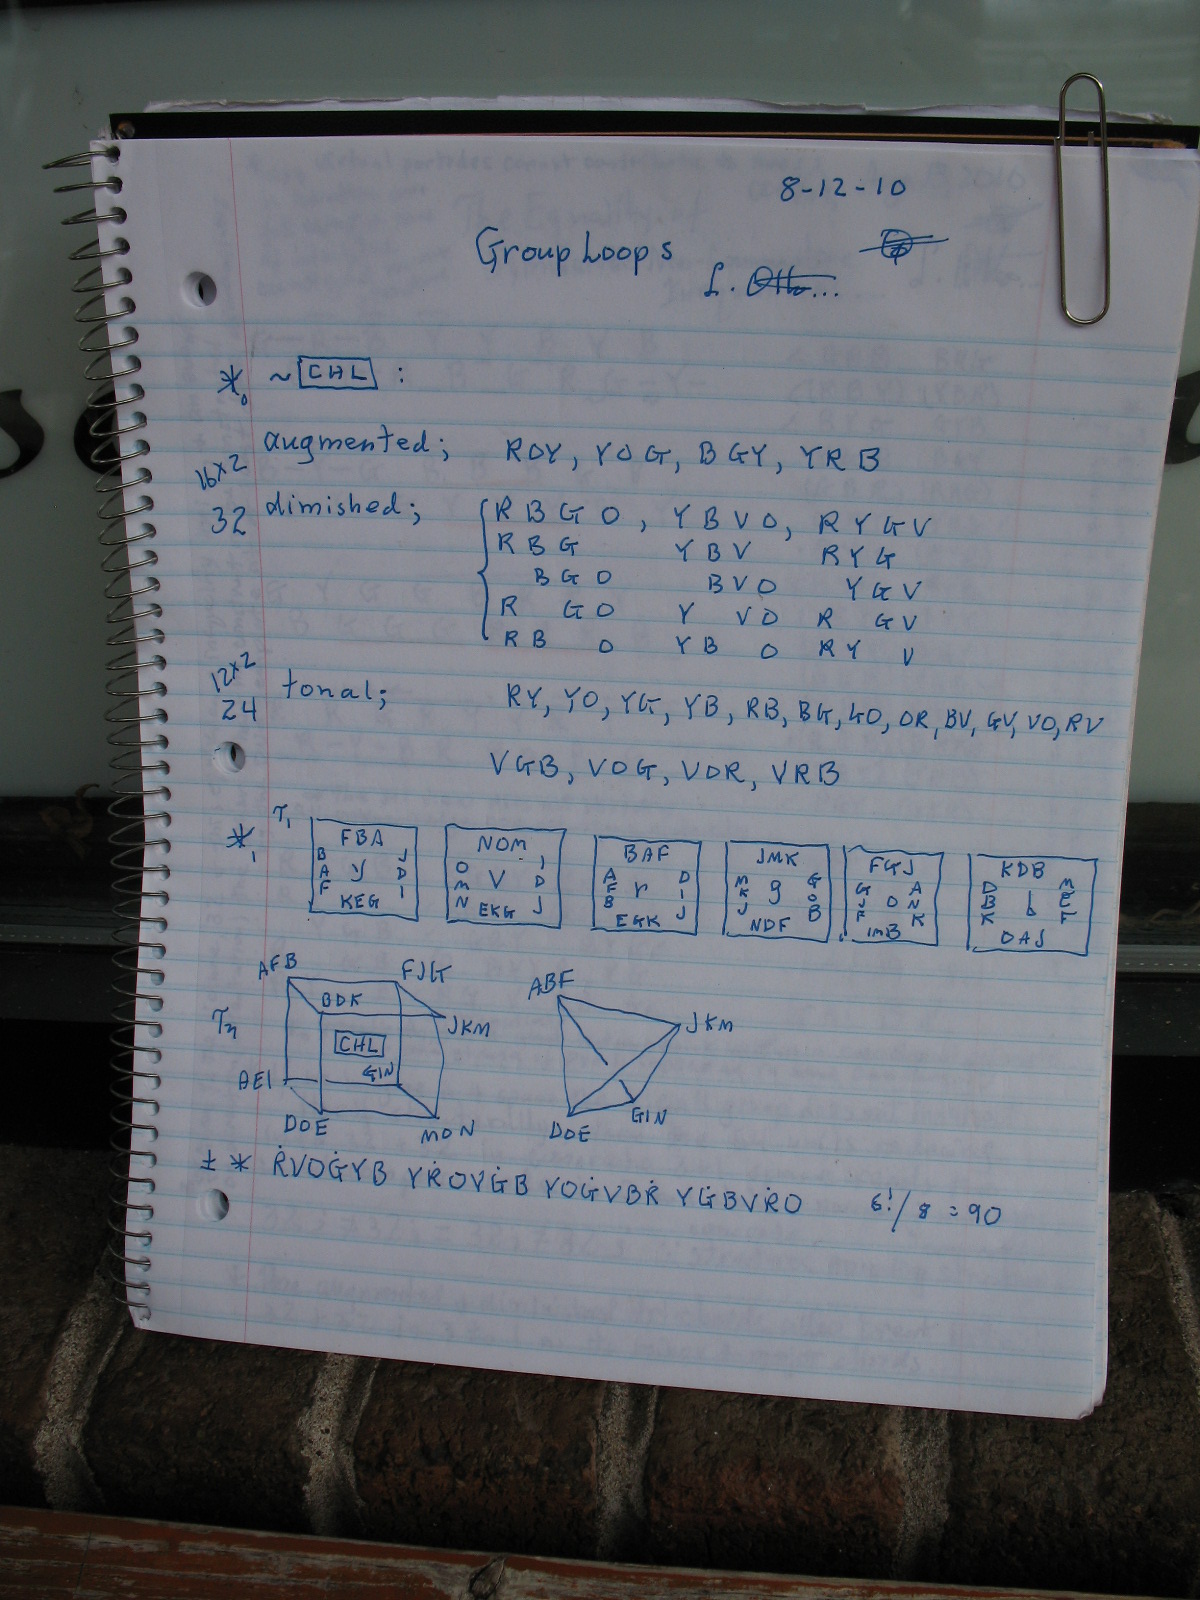 8-12-10
Group Loops
L. Otto...
*0 ~ CHL :
augmented; ROY, YOG, BGY, YRB
16x2
32 dimished; { RBGO, YBVO, RYGV
RBG YBV RYG
BGO BVO YGV
R GO Y VO R GV
RB O YB O RY V
12x2
24 tonal; RY, YO, YG, YB, RB, BG, GO, OR, BV, GV, VO, RV
VGB, VOG, VOR, VRB
*1 T1
FBA NOM BAF JMK FGJ KDB
B J O I A D M G G A D M
A y D M V D F r I K g O J O N B b E
F I N J B J J B F K K F
KEG EKG EGK NDF IMB OAJ
AFB FJG ABF
BDK JKM JKM
Tn CHL
AEI GIN GIN
DOE MON DOE
± * ṘVOĠYB YṘOVĠB YOĠVBṘ YĠBVṘO 6!/8 = 90